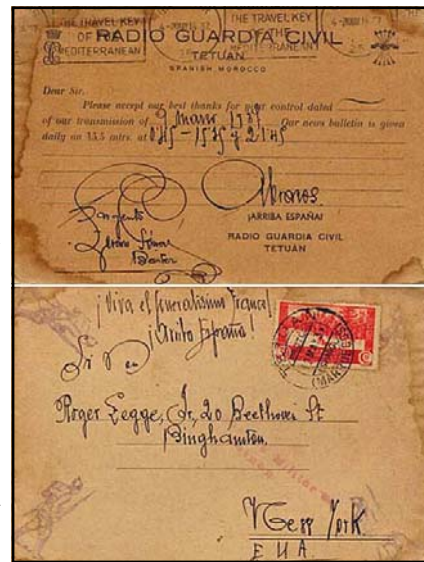 THE TRAVEL KEY
OF THE
MEDITERRANEAN
THE TRAVEL KEY
OF THE
MEDITERRANEAN
RADIO GUARDIA CIVIL
TETUÁN
SPANISH MOROCCO
Dear Sir.
Please accept our best thanks for your control dated
of our transmission of 9 marzo 1937 Our news bulletin is given
daily on 33.5 mtrs. at
¡ARRIBA ESPAÑA!
RADIO GUARDIA CIVIL
TETUÁN
Sargento
¡Viva el Generalísimo Franco!
¡Arriba España
Roger Legge, Jr, 20 Beethoven St
Binghamton.
New York
E U A.